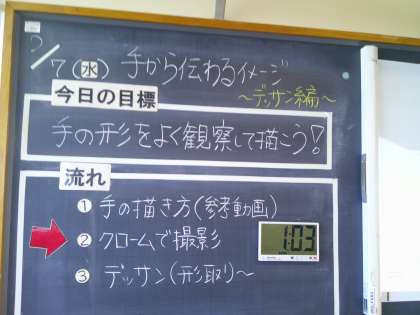 7(水) 手から伝わるイメージ
～デッサン編～
今日の目標
手の形をよく観察して描こう!
流れ
① 手の描き方(参考動画)
② クロームで撮影
1:03
③ デッサン(形取り～